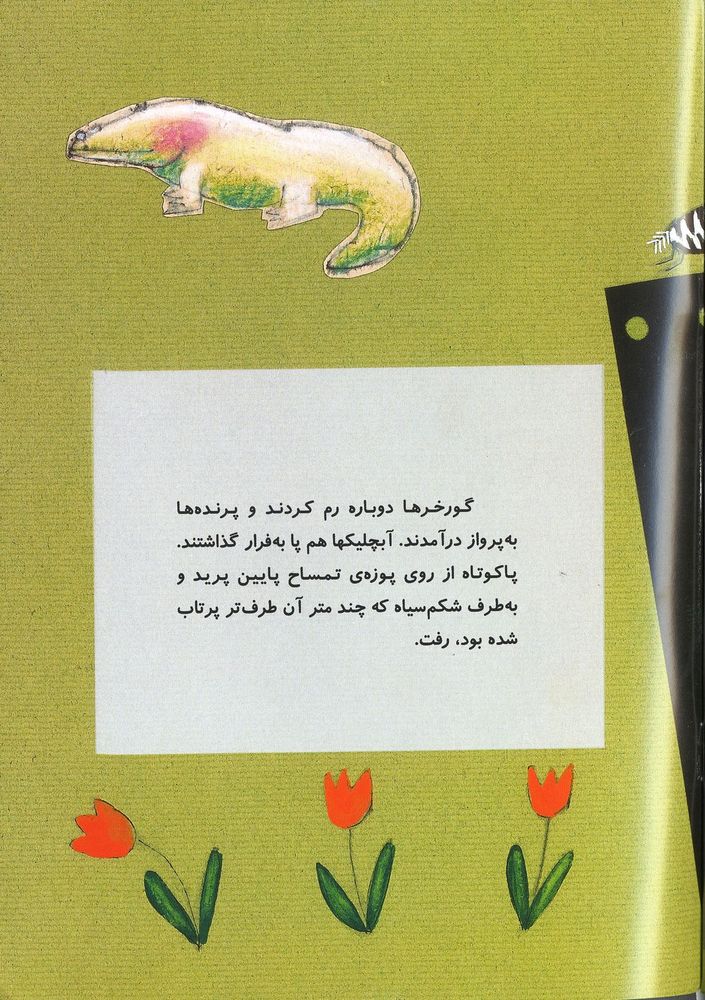 گورخرها دوباره رم کردند و پرنده‌ها
به‌پرواز درآمدند. آبچلیکها هم پا به‌فرار گذاشتند.
پاکوتاه از روی پوزه‌ی تمساح پایین پرید و
به‌طرف شکم‌سیاه که چند متر آن طرف‌تر پرتاب
شده بود، رفت.